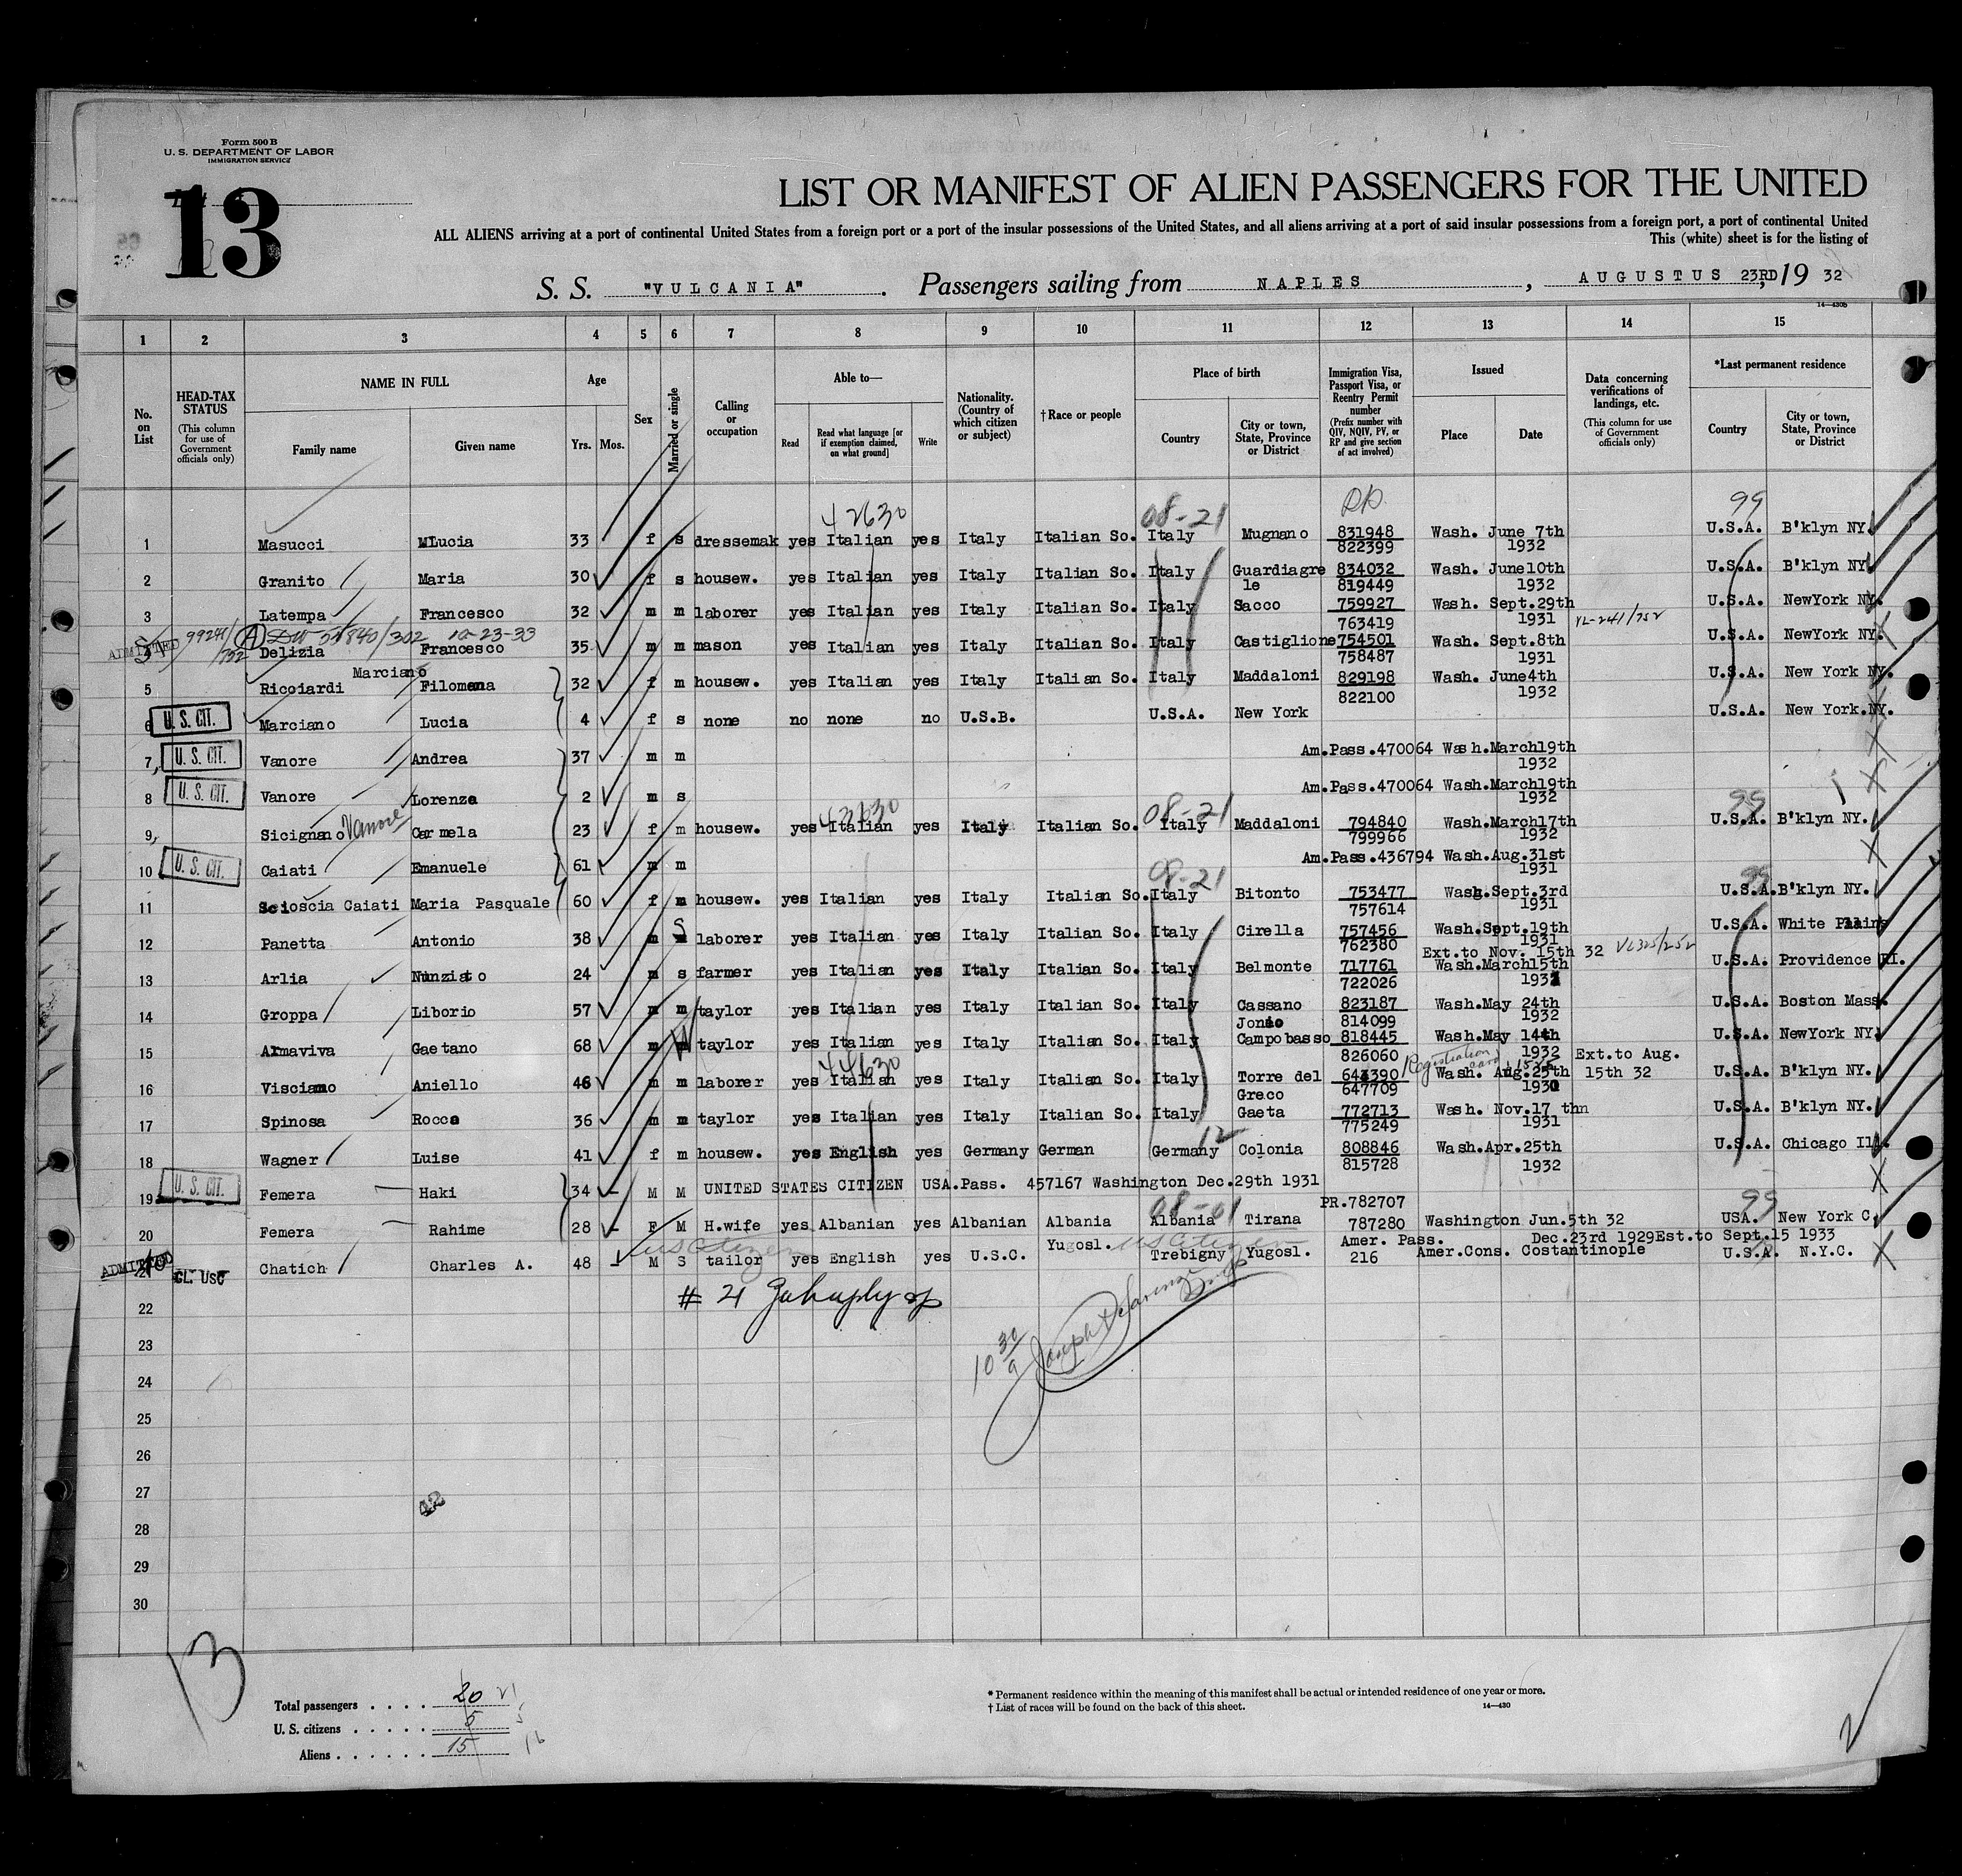 Form 500 B
U. S. DEPARTMENT OF LABOR
IMMIGRATION SERVICE
13
LIST OR MANIFEST OF ALIEN PASSENGERS FOR THE UNITED
ALL ALIENS arriving at a port of continental United States from a foreign port or a port of the insular possessions of the United States, and all aliens arriving at a port of said insular possessions from a foreign port, a port of continental United
This (white) sheet is for the listing of
S. S. "VULCANIA" . Passengers sailing from NAPLES , AUGUSTUS 23RD, 19 32
14—430B
1 2 3 4 5 6 7 8 9 10 11 12 13 14 15
No. on List
HEAD-TAX STATUS (This column for use of Government officials only)
NAME IN FULL Family name Given name
Age Yrs. Mos.
Sex
Married or single
Calling or occupation
Able to— Read Read what language [or if exemption claimed, on what ground] Write
Nationality. (Country of which citizen or subject)
†Race or people
Place of birth Country City or town, State, Province or District
Immigration Visa, Passport Visa, or Reentry Permit number (Prefix number with QIV, NQIV, PV, or RP and give section of act involved)
Issued Place Date
Data concerning verifications of landings, etc. (This column for use of Government officials only)
*Last permanent residence Country City or town, State, Province or District
42630 08-21 RP 99
1 Masucci MLucia 33 f s dressemak yes Italian yes Italy Italian So. Italy Mugnano 831948 Wash. June 7th U.S.A. B'klyn NY.
822399 1932
2 Granito Maria 30 f s housew. yes Italian yes Italy Italian So. Italy Guardiagre 834032 Wash. June10th U.S.A. B'klyn NY
le 819449 1932
3 Latempa Francesco 32 m m laborer yes Italian yes Italy Italian So. Italy Sacco 759927 Wash. Sept.29th U.S.A. NewYork NY.
763419 1931 VL-241/752
ADMITTED 99241/752 (A) 10-23-33
4 Delizia Francesco 35 m m mason yes Italian yes Italy Italian So. Italy Castiglione 754501 Wash. Sept.8th U.S.A. NewYork NY.
758487 1931
Marciano
5 Ricciardi Filomena 32 f m housew. yes Italian yes Italy Italian So. Italy Maddaloni 829198 Wash. June4th U.S.A. New York NY.
822100 1932
6 U. S. CIT. Marciano Lucia 4 f s none no none no U.S.B. U.S.A. New York U.S.A. New York.NY.
7 U. S. CIT. Vanore Andrea 37 m m Am.Pass.470064 Wash.March19th
1932
8 U. S. CIT. Vanore Lorenza 2 m s Am.Pass.470064 Wash.March19th
1932
42630 08-21 99
9 Sicignano Vanore Carmela 23 f m housew. yes Italian yes Italy Italian So. Italy Maddaloni 794840 Wash.March17th U.S.A. B'klyn NY.
799966 1932
10 U. S. CIT. Caiati Emanuele 61 m m Am.Pass.436794 Wash.Aug.31st
1931
08-21 99
11 Scioscia Caiati Maria Pasquale 60 f m housew. yes Italian yes Italy Italian So. Italy Bitonto 753477 Wasg.Sept.3rd U.S.A. B'klyn NY.
757614 1931
12 Panetta Antonio 38 m S laborer yes Italian yes Italy Italian So. Italy Cirella 757456 Wash.Sept.19th U.S.A. White Plains
762380 1931
Ext.to Nov. 15th 32
13 Arlia Nunziato 24 m s farmer yes Italian yes Italy Italian So. Italy Belmonte 717761 Wash.March15th U.S.A. Providence RI.
722026 1931
14 Groppa Liborio 57 m m taylor yes Italian yes Italy Italian So. Italy Cassano 823187 Wash.May 24th U.S.A. Boston Mass.
Jonio 814099 1932
15 Armaviva Gaetano 68 m W taylor yes Italian yes Italy Italian So. Italy Campobasso 818445 Wash.May 14th U.S.A. NewYork NY.
826060 1932 Ext.to Aug.
44630 Registration card
16 Visciamo Aniello 46 m m laborer yes Italian yes Italy Italian So. Italy Torre del 644390 Wash. Aug.25th 15th 32 U.S.A. B'klyn NY.
Greco 647709 1930
17 Spinosa Rocco 36 m m taylor yes Italian yes Italy Italian So. Italy Gaeta 772713 Wash. Nov.17 thn U.S.A. B'klyn NY.
775249 1931
12
18 Wagner Luise 41 f m housew. yes English yes Germany German Germany Colonia 808846 Wash.Apr.25th U.S.A. Chicago Ill.
815728 1932
19 U. S. CIT. Femera Haki 34 M M UNITED STATES CITIZEN USA.Pass. 457167 Washington Dec.29th 1931
08-01 PR.782707 99
20 Femera Rahime 28 F M H.wife yes Albanian yes Albanian Albania Albania Tirana 787280 Washington Jun.5th 32 USA. New York C.
US Citizen Yugosl. US Citizen Amer. Pass. Dec.23rd 1929Est.to Sept.15 1933
ADMITTED 21 CL. USC Chatich Charles A. 48 M S tailor yes English yes U.S.C. Trebigny Yugosl. 216 Amer.Cons. Costantinople U.S.A. N.Y.C.
22
# 21
23
10 30/9
24
25
26
27
42
28
29
30
13
Total passengers . . . . 20 21
U. S. citizens . . . . . 5 5
Aliens . . . . . . 15 16
* Permanent residence within the meaning of this manifest shall be actual or intended residence of one year or more.
† List of races will be found on the back of this sheet.
14—430
2